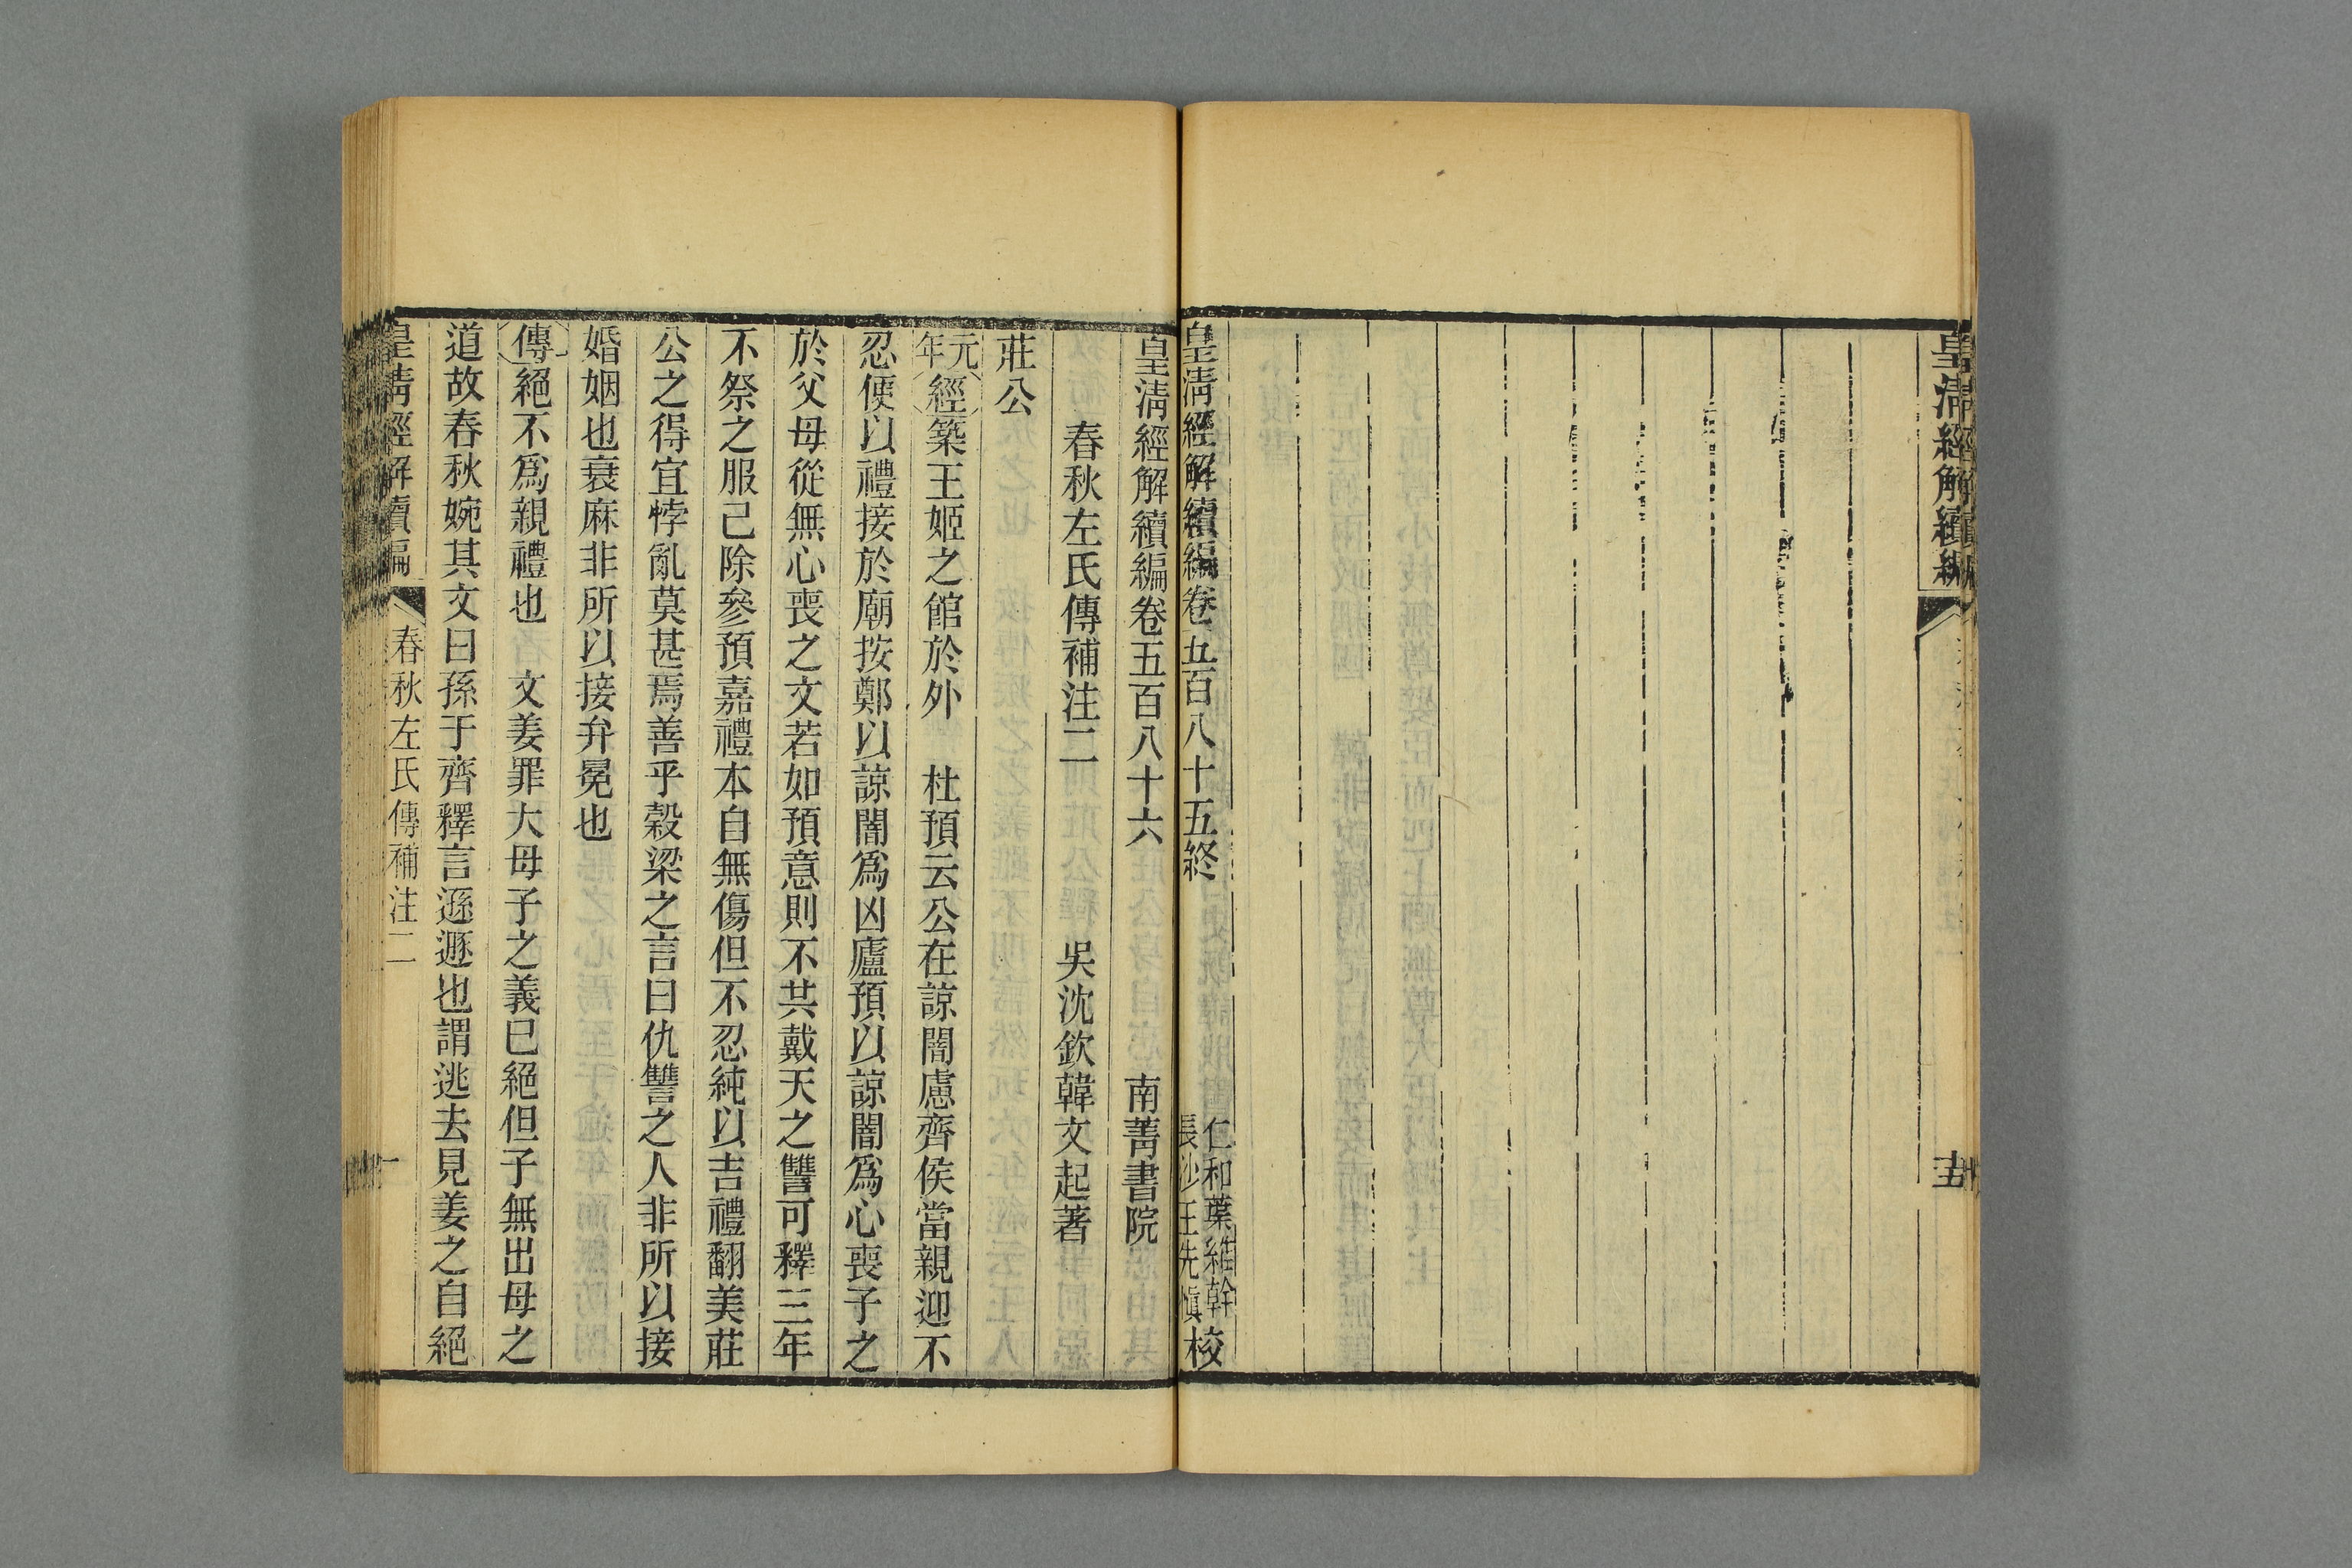 皇清經解續編
皇清經解續編卷五百八十五終
仁和葉維幹
長沙王先慎校
皇清經解續編卷五百八十六　南菁書院
春秋左氏傳補注二　吳沈欽韓文起著
莊公
元年經築王姬之館於外　杜預云公在諒闇慮齊侯當親迎不
忍便以禮接於廟按鄭以諒闇爲凶廬預以諒闇爲心喪子之
於父母從無心喪之文若如預意則不共戴天之讐可釋三年
不祭之服己除參預嘉禮本自無傷但不忍純以吉禮翻美莊
公之得宜悖亂莫甚焉善乎穀梁之言曰仇讐之人非所以接
婚姻也衰麻非所以接弁冕也
傳絕不爲親禮也　文姜罪大母子之義巳絕但子無出母之
道故春秋婉其文曰孫于齊釋言遜遯也謂逃去見姜之自絕
皇清經解續編　春秋左氏傳補注二　一